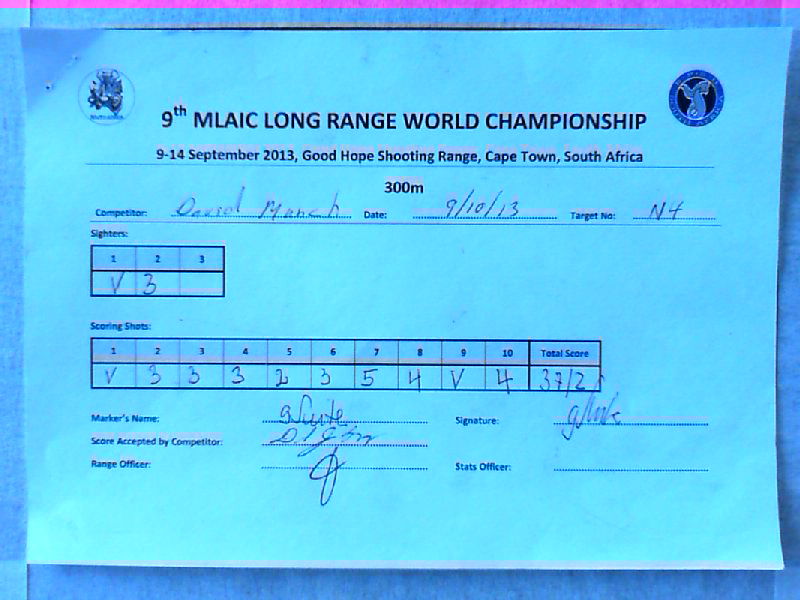 9th MLAIC LONG RANGE WORLD CHAMPIONSHIP
9-14 September 2013, Good Hope Shooting Range, Cape Town, South Africa
300m
Competitor: David Date: 9/10/13 Target No: N4
Sighters:
1 2 3
V 3
Scoring Shots:
1 2 3 4 5 6 7 8 9 10 Total Score
V 3 3 3 2 3 5 4 V 4 37/2
Marker's Name: Signature:
Score Accepted by Competitor:
Range Officer: Stats Officer: